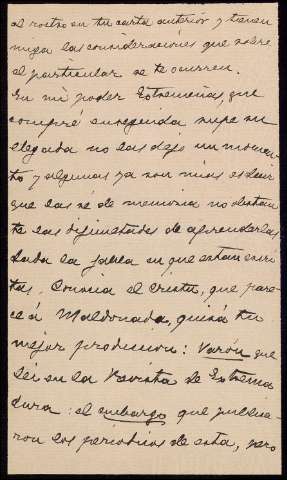 al rostro en tu carta anterior y tienen
miga las consideraciones que sobre
el particular se te ocurren.
En mi poder Extremeñas, que
compré enseguida supe su
llegada no las dejo un momen-
to y algunas ya son mias es decir
que las sé de memoria no obstan
te las dificultades de aprenderlas
dada la jabla en que estan escri
tas. Conocia el Cristu, que pare-
ce á Maldonado, quizá tu
mejor produccion: Varón que
leí en la Revista de Extrema
dura: el embargo que publica-
ron los periodicos de esta, pero